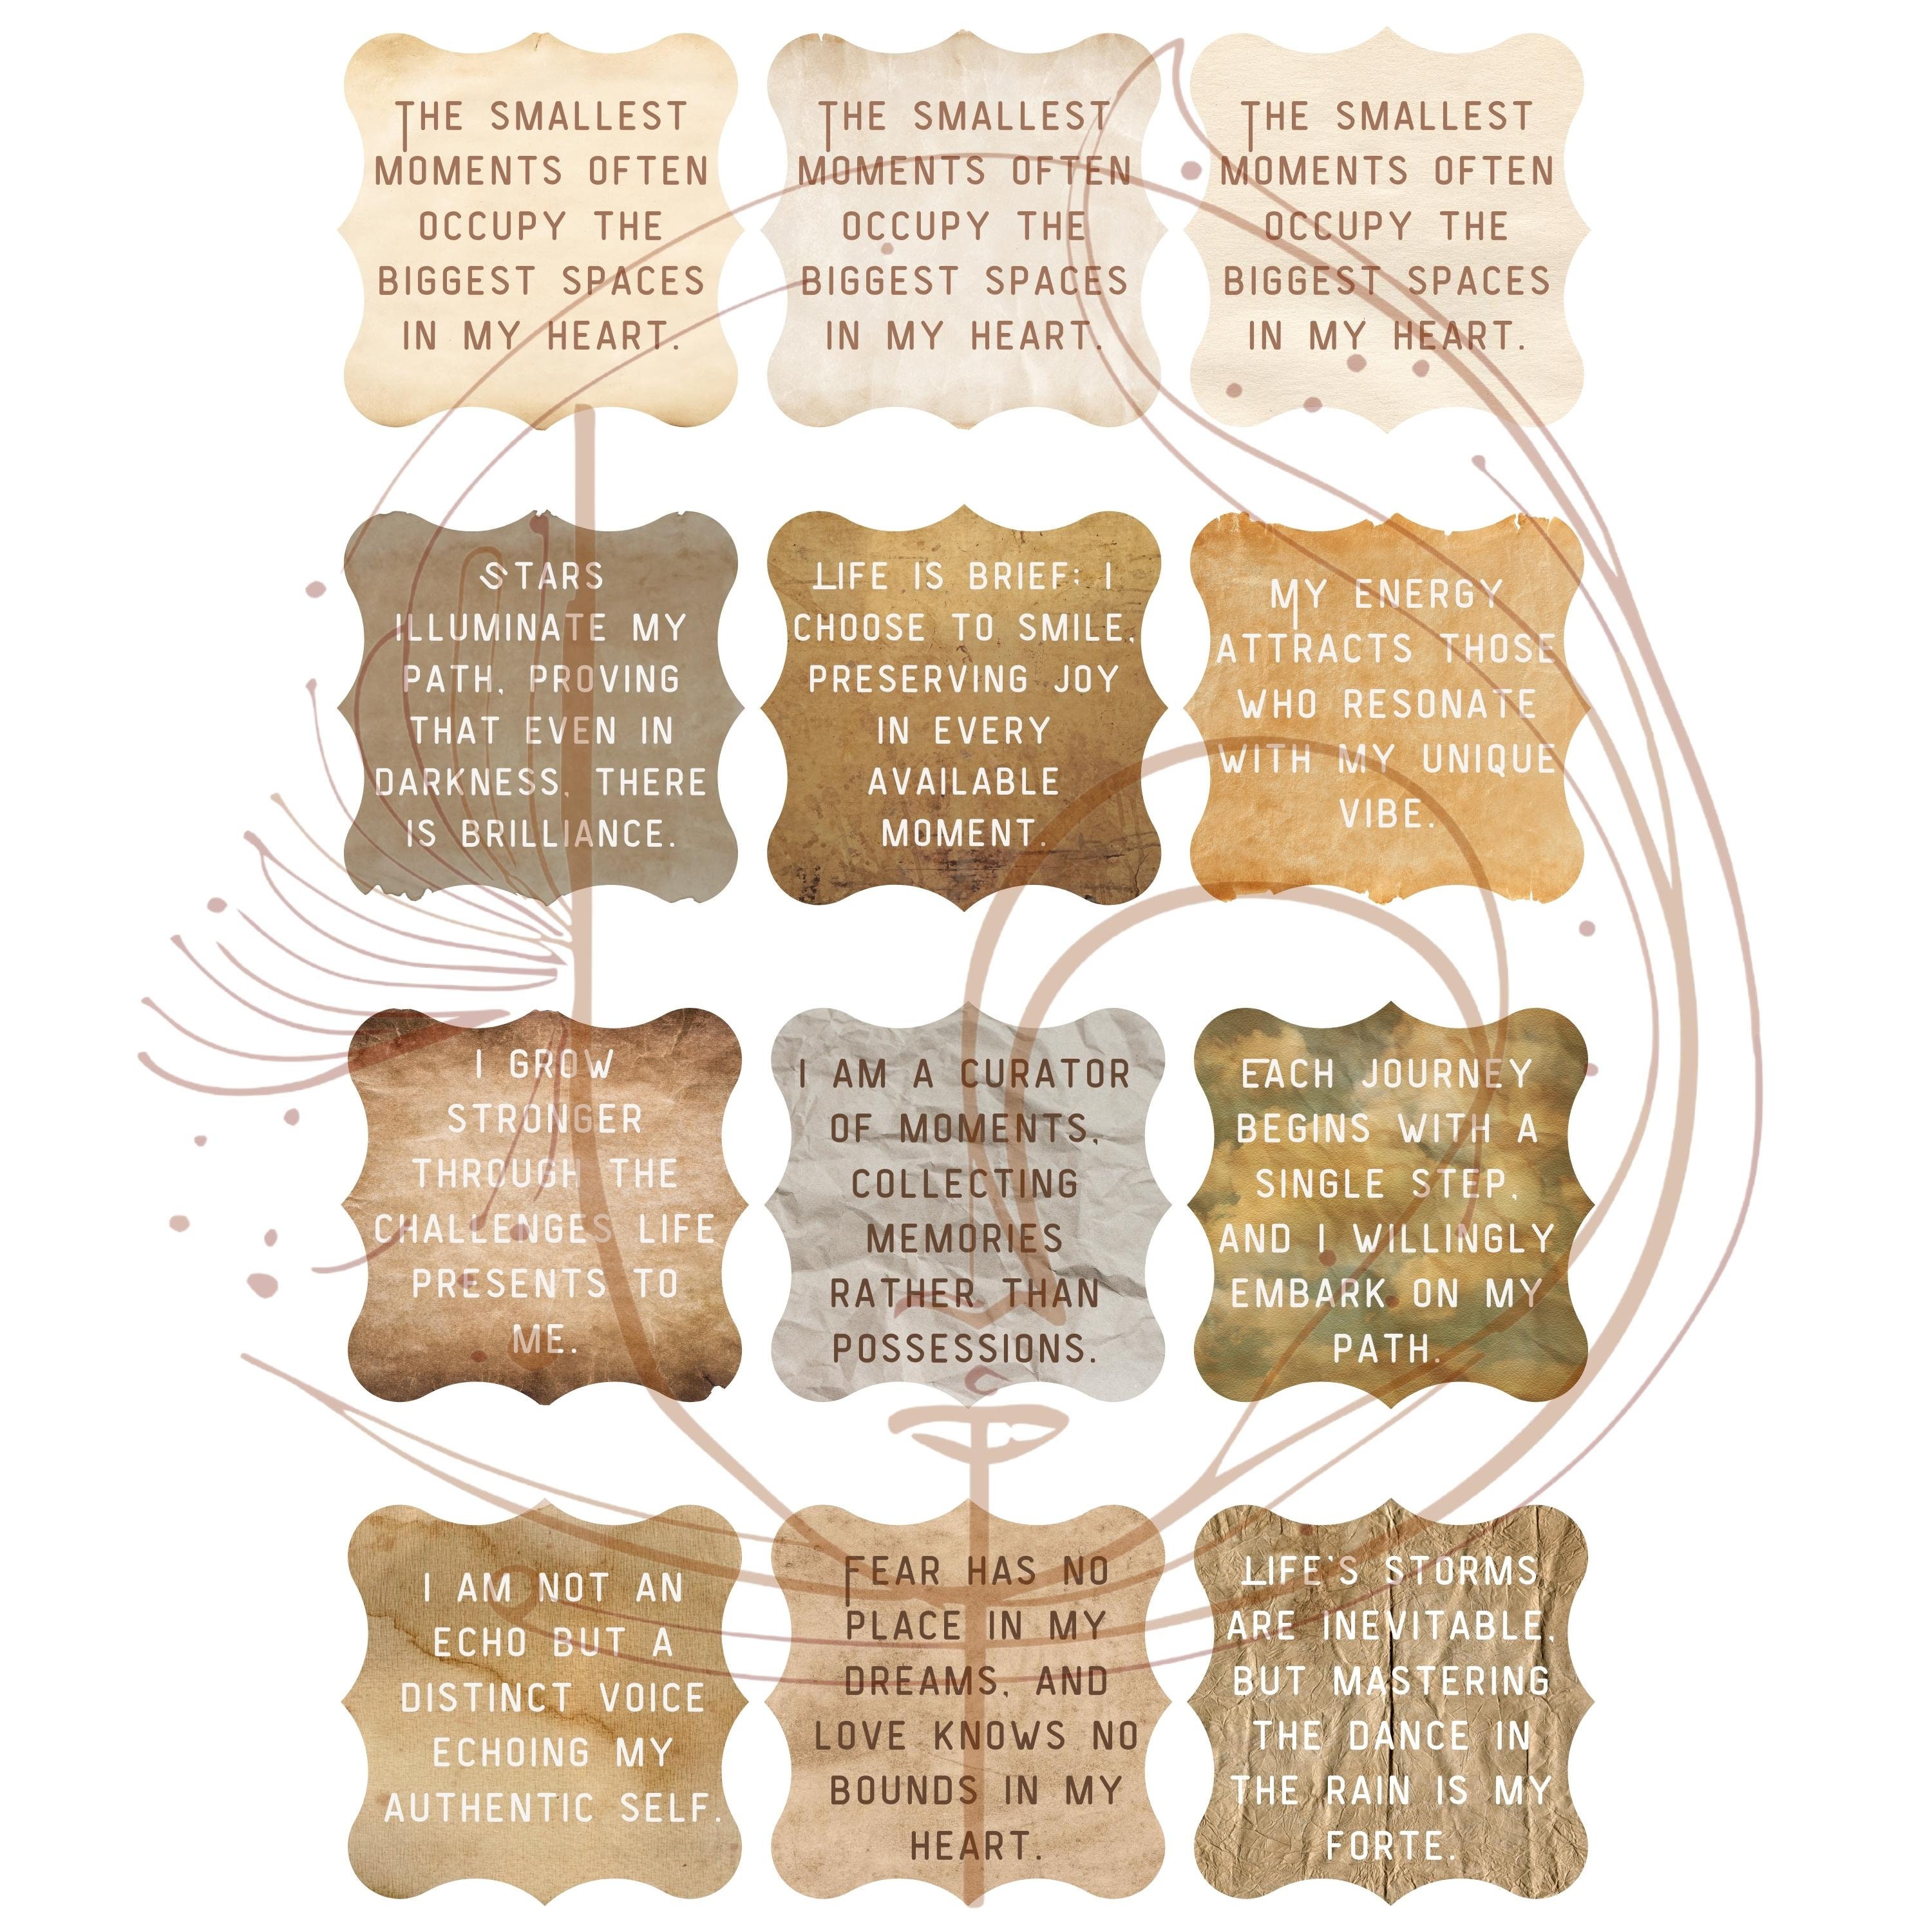 THE SMALLEST
MOMENTS OFTEN
OCCUPY THE
BIGGEST SPACES
IN MY HEART.
THE SMALLEST
MOMENTS OFTEN
OCCUPY THE
BIGGEST SPACES
IN MY HEART.
THE SMALLEST
MOMENTS OFTEN
OCCUPY THE
BIGGEST SPACES
IN MY HEART.
STARS
ILLUMINATE MY
PATH, PROVING
THAT EVEN IN
DARKNESS, THERE
IS BRILLIANCE.
LIFE IS BRIEF; I
CHOOSE TO SMILE,
PRESERVING JOY
IN EVERY
AVAILABLE
MOMENT.
MY ENERGY
ATTRACTS THOSE
WHO RESONATE
WITH MY UNIQUE
VIBE.
I GROW
STRONGER
THROUGH THE
CHALLENGES LIFE
PRESENTS TO
ME.
I AM A CURATOR
OF MOMENTS,
COLLECTING
MEMORIES
RATHER THAN
POSSESSIONS.
EACH JOURNEY
BEGINS WITH A
SINGLE STEP,
AND I WILLINGLY
EMBARK ON MY
PATH.
I AM NOT AN
ECHO BUT A
DISTINCT VOICE
ECHOING MY
AUTHENTIC SELF.
FEAR HAS NO
PLACE IN MY
DREAMS, AND
LOVE KNOWS NO
BOUNDS IN MY
HEART.
LIFE'S STORMS
ARE INEVITABLE,
BUT MASTERING
THE DANCE IN
THE RAIN IS MY
FORTE.